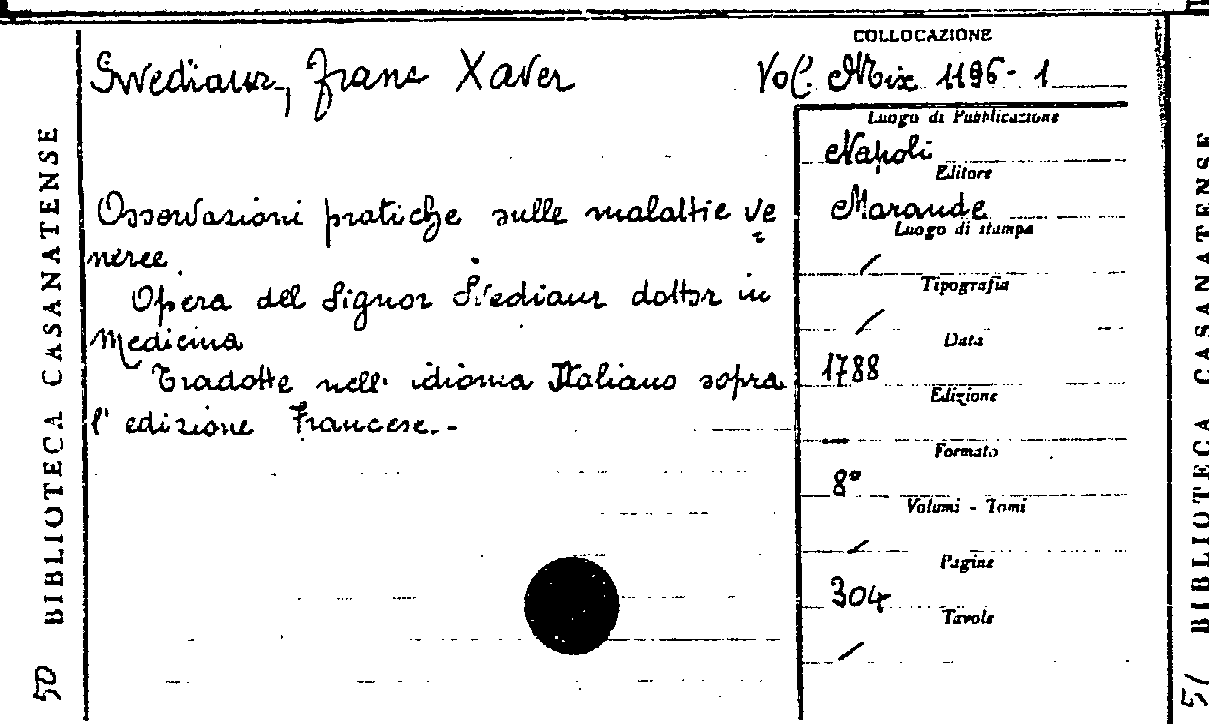 COLLOCAZIONE
Swediaur, Franc Xaver
Vol. Mix 1196-1
Luogo di Pubblicazione
Napoli
Editore
Marande
Luogo di stampa
/
Tipografia
/
Data
1788
Edizione
—
Formato
8°
Volumi - Tomi
/
Pagine
304
Tavole
/
Osservazioni pratiche sulle malattie ve
neree.
Opera del Signor Svediaur dottor in
Medicina
Tradotte nell' idioma Italiano sopra
l' edizione Francese.-
BIBLIOTECA CASANATENSE
50
BIBLIOTECA CASANATENSE
51